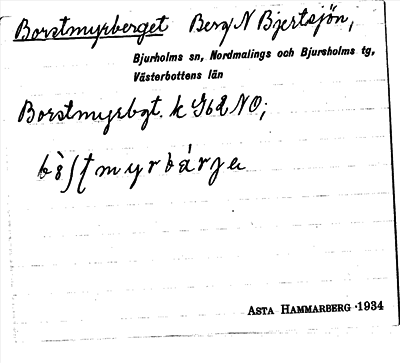 Borstmyrberget Berg N Bjertsjön,
Bjurholms sn, Nordmalings och Bjurholms tg,
Västerbottens län
Borstmyrbgt. k
ASTA HAMMARBERG 1934